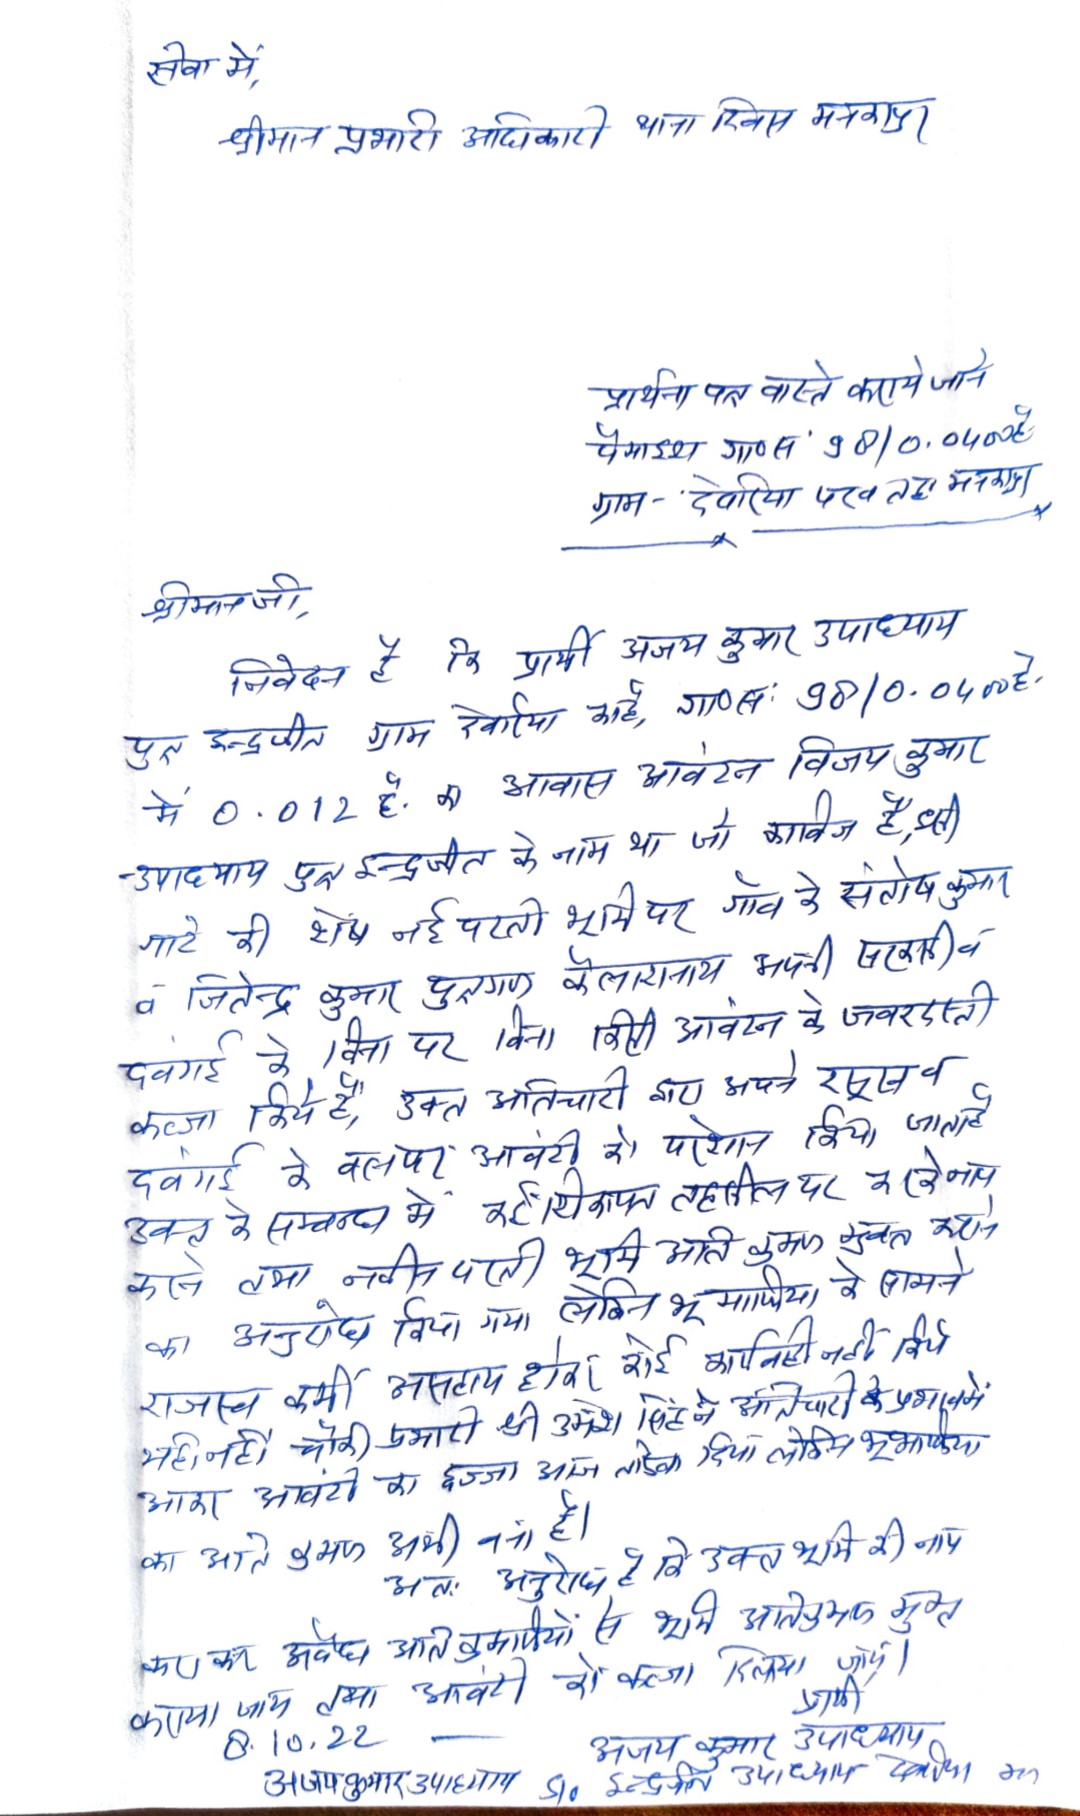 सेवा में,
श्रीमान प्रभारी अधिकारी थाना दिवस मनकापुर
प्रार्थना पत्र वास्ते कराये जाने
पैमाइश गा०सं० 98/0.0400हे.
ग्राम - देवरिया तह० मनकापुर
श्रीमान जी,
निवेदन है कि प्रार्थी अजय कुमार उपाध्याय
पुत्र इन्द्रजीत ग्राम देवरिया का है, गा०सं: 98/0.0400हे.
में 0.012 हे. का आवास आवंटन विजय कुमार
उपाध्याय पुत्र इन्द्रजीत के नाम था जो काबिज है, इसी
गाटे की शेष नई परती भूमि पर गाँव के संतोष कुमार
व जितेन्द्र कुमार पुत्रगण कैलाशनाथ अपनी सरकसी व
दवंगई के बिना पर बिना किसी आवंटन के जबरदस्ती
कब्जा किये हैं, उक्त अतिचारी द्वारा अपने रसूख व
दवंगई के बल पर आवंटी को परेशान किया जाता है
उक्त के सम्बन्ध में कई शिकायत तहसील पर करके नाप
करने तथा नवीन परती भूमि अतिक्रमण मुक्त कराने
का अनुरोध किया गया लेकिन भूमाफिया के सामने
राजस्व कर्मी असहाय होकर कोई कार्यवाही नहीं किये
यही नहीं चौकी प्रभारी श्री उमेश सिंह ने अतिचारी के प्रभाव में
आकर आवंटी का छज्जा आज तोड़वा दिया लेकिन भूमाफिया
का अतिक्रमण अभी बना है।
अतः अनुरोध है कि उक्त भूमि की नाप
करा कर अवैध अतिक्रमणियों से भूमि अतिक्रमण मुक्त
कराया जाय तथा आवंटी को कब्जा दिलाया जाये।
प्रार्थी
8.10.22 अजय कुमार उपाध्याय
अजय कुमार उपाध्याय S/o इन्द्रजीत उपाध्याय देवरिया